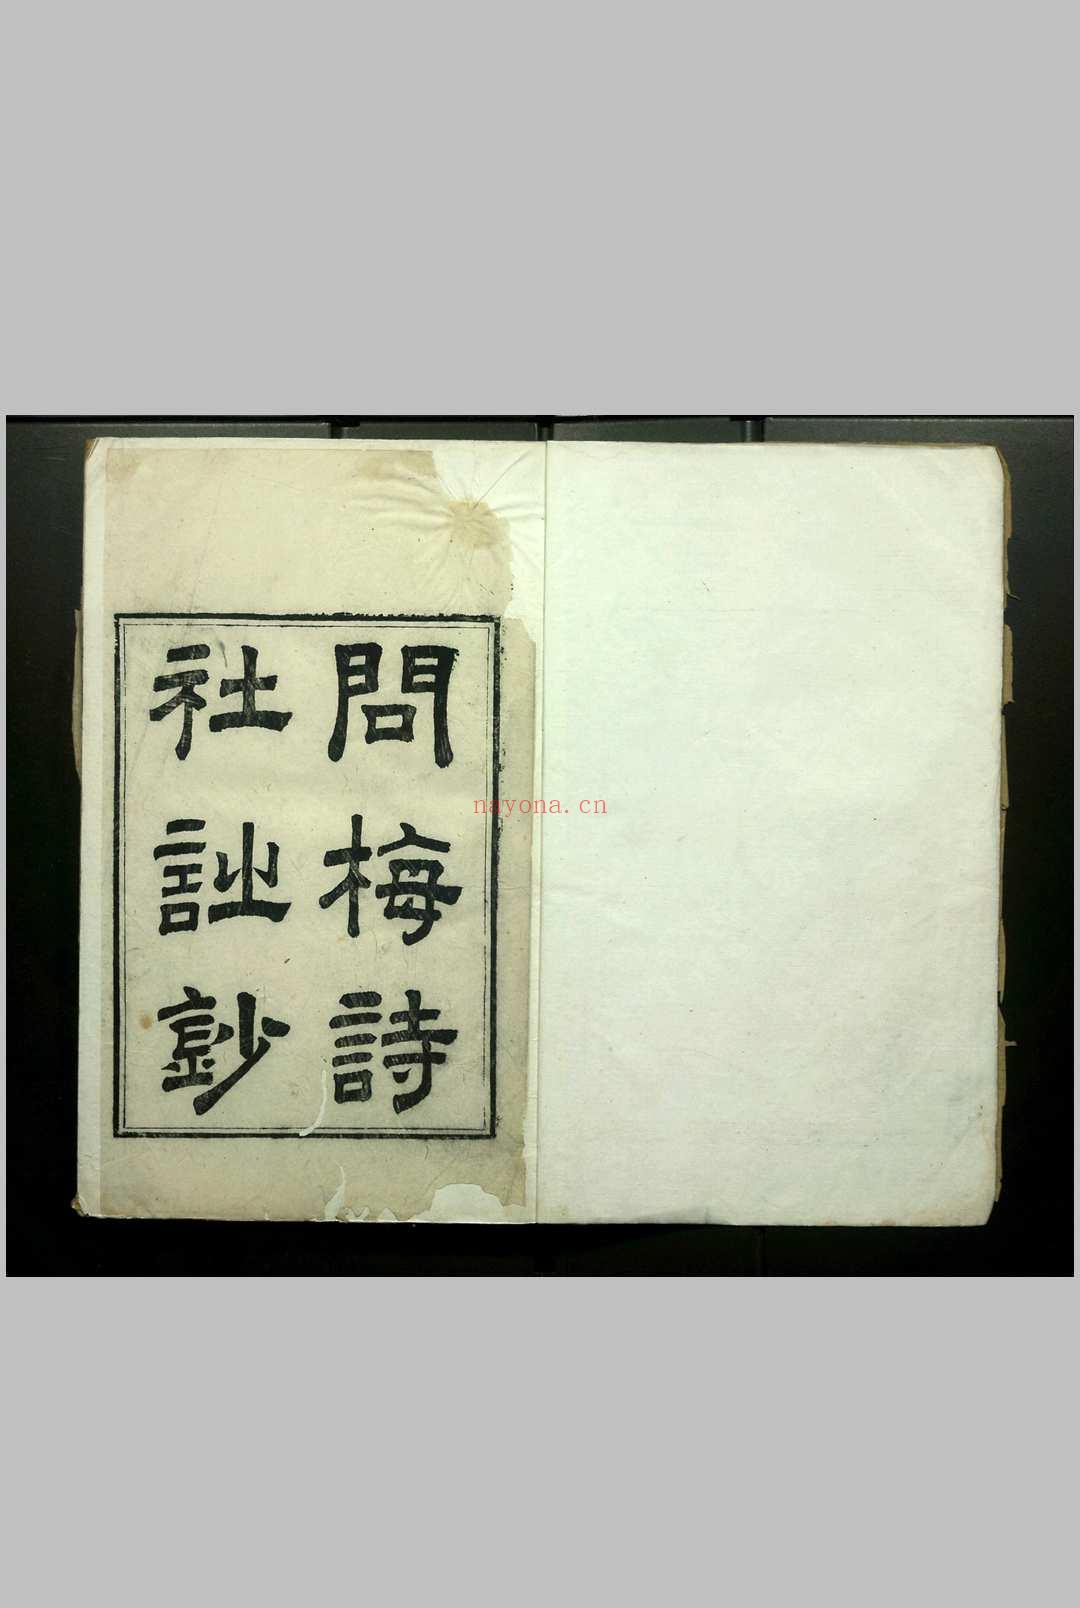 問梅詩
社詩鈔
nayona.cn